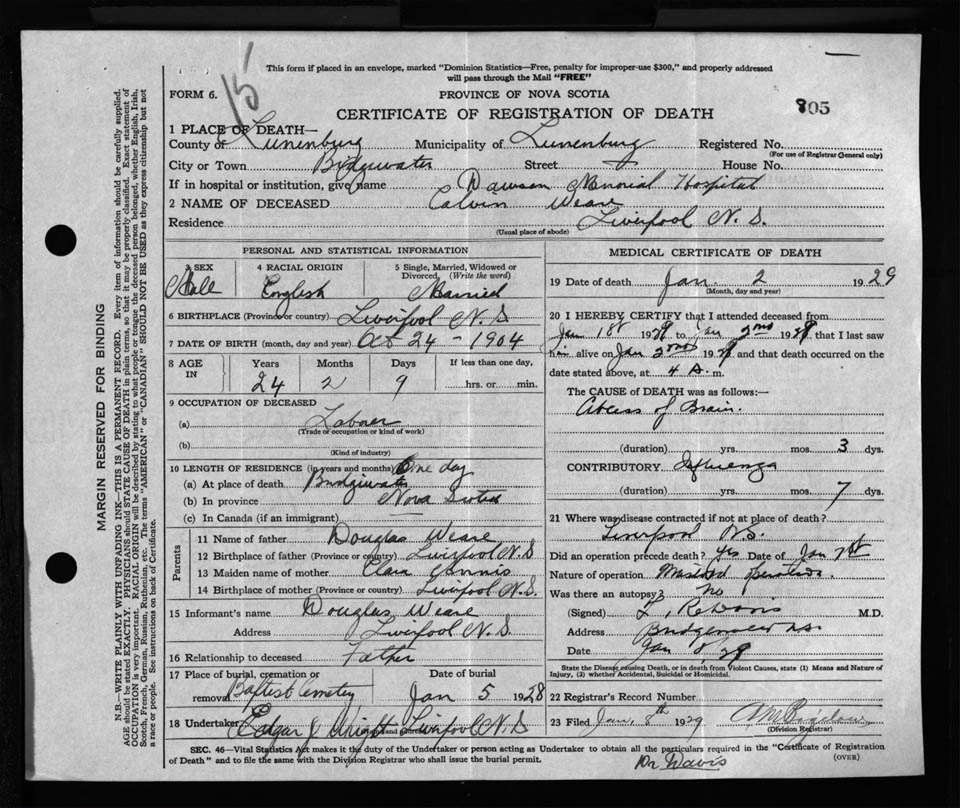 15
This form if placed in an envelope, marked "Dominion Statistics—Free, penalty for improper use $300," and properly addressed
will pass through the Mail "FREE"
FORM 6.
PROVINCE OF NOVA SCOTIA
CERTIFICATE OF REGISTRATION OF DEATH
805
1 PLACE OF DEATH—
County of Lunenburg Municipality of Lunenburg Registered No.
(For use of Registrar General only)
City or Town Bridgewater Street House No.
If in hospital or institution, give name Dawson Memorial Hospital
2 NAME OF DECEASED Calvin Weare
Residence Liverpool N.S.
(Usual place of abode)
PERSONAL AND STATISTICAL INFORMATION
3 SEX
Male
4 RACIAL ORIGIN
English
5 Single, Married, Widowed or
Divorced, (Write the word)
Married
6 BIRTHPLACE (Province or country) Liverpool N.S
7 DATE OF BIRTH (month, day and year) Oct 24 - 1904
8 AGE
IN
Years
24
Months
2
Days
9
If less than one day,
hrs. or min.
9 OCCUPATION OF DECEASED
(a) Laborer
(Trade or occupation or kind of work)
(b)
(Kind of industry)
10 LENGTH OF RESIDENCE (in years and months) One day
(a) At place of death Bridgewater
(b) In province Nova Scotia
(c) In Canada (if an immigrant)
Parents
11 Name of father Douglas Weare
12 Birthplace of father (Province or country) Liverpool N.S
13 Maiden name of mother Clara
14 Birthplace of mother (Province or country) Liverpool N.S.
15 Informant's name Douglas Weare
Address Liverpool N.S.
16 Relationship to deceased Father
17 Place of burial, cremation or
removal Baptist Cemetery
Date of burial
Jan 5 1928
18 Undertaker Edgar J Wright Liverpool N.S
MEDICAL CERTIFICATE OF DEATH
19 Date of death Jan. 2 1929
(Month, day and year)
20 I HEREBY CERTIFY that I attended deceased from
Jan 1st 1929 to Jan 2nd 1929 that I last saw
him alive on Jan 2nd 1929 and that death occurred on
date stated above, at 4 A. m.
The CAUSE OF DEATH was as follows:—
Abcess of Brain.
(duration) yrs. mos. 3 dys.
CONTRIBUTORY Influenza
(duration) yrs. mos. 7 dys.
21 Where was disease contracted if not at place of death?
Liverpool N.S.
Did an operation precede death? Yes Date of Jan 1st
Nature of operation Mastoid operation.
Was there an autopsy? No
(Signed) Davis M.D.
Address Bridgewater N.S.
Date Jan 8, 29
State the Disease causing Death, or in death from Violent Causes, state (1) Means and Nature of
Injury, (2) whether Accidental, Suicidal or Homicidal.
22 Registrar's Record Number
23 Filed Jan. 8th 1929
(Division Registrar)
SEC. 46—Vital Statistics Act makes it the duty of the Undertaker or person acting as Undertaker to obtain all the particulars required in the "Certificate of Registration
of Death" and to file the same with the Division Registrar who shall issue the burial permit.
(OVER)
Dr Davis
MARGIN RESERVED FOR BINDING
N.B.—WRITE PLAINLY WITH UNFADING INK—THIS IS A PERMANENT RECORD. Every item of information should be carefully supplied.
AGE should be stated EXACTLY. PHYSICIANS should STATE CAUSE OF DEATH in plain terms, so that it may be properly classified. Exact statement of
OCCUPATION is very important. RACIAL ORIGIN will be described by stating to what people or tongue the deceased person belonged, whether English, Irish,
Scotch, French, German, Russian, Ruthenian, etc. The terms "AMERICAN" or "CANADIAN" SHOULD NOT BE USED as they express citizenship but not
a race or people. See instructions on back of Certificate.